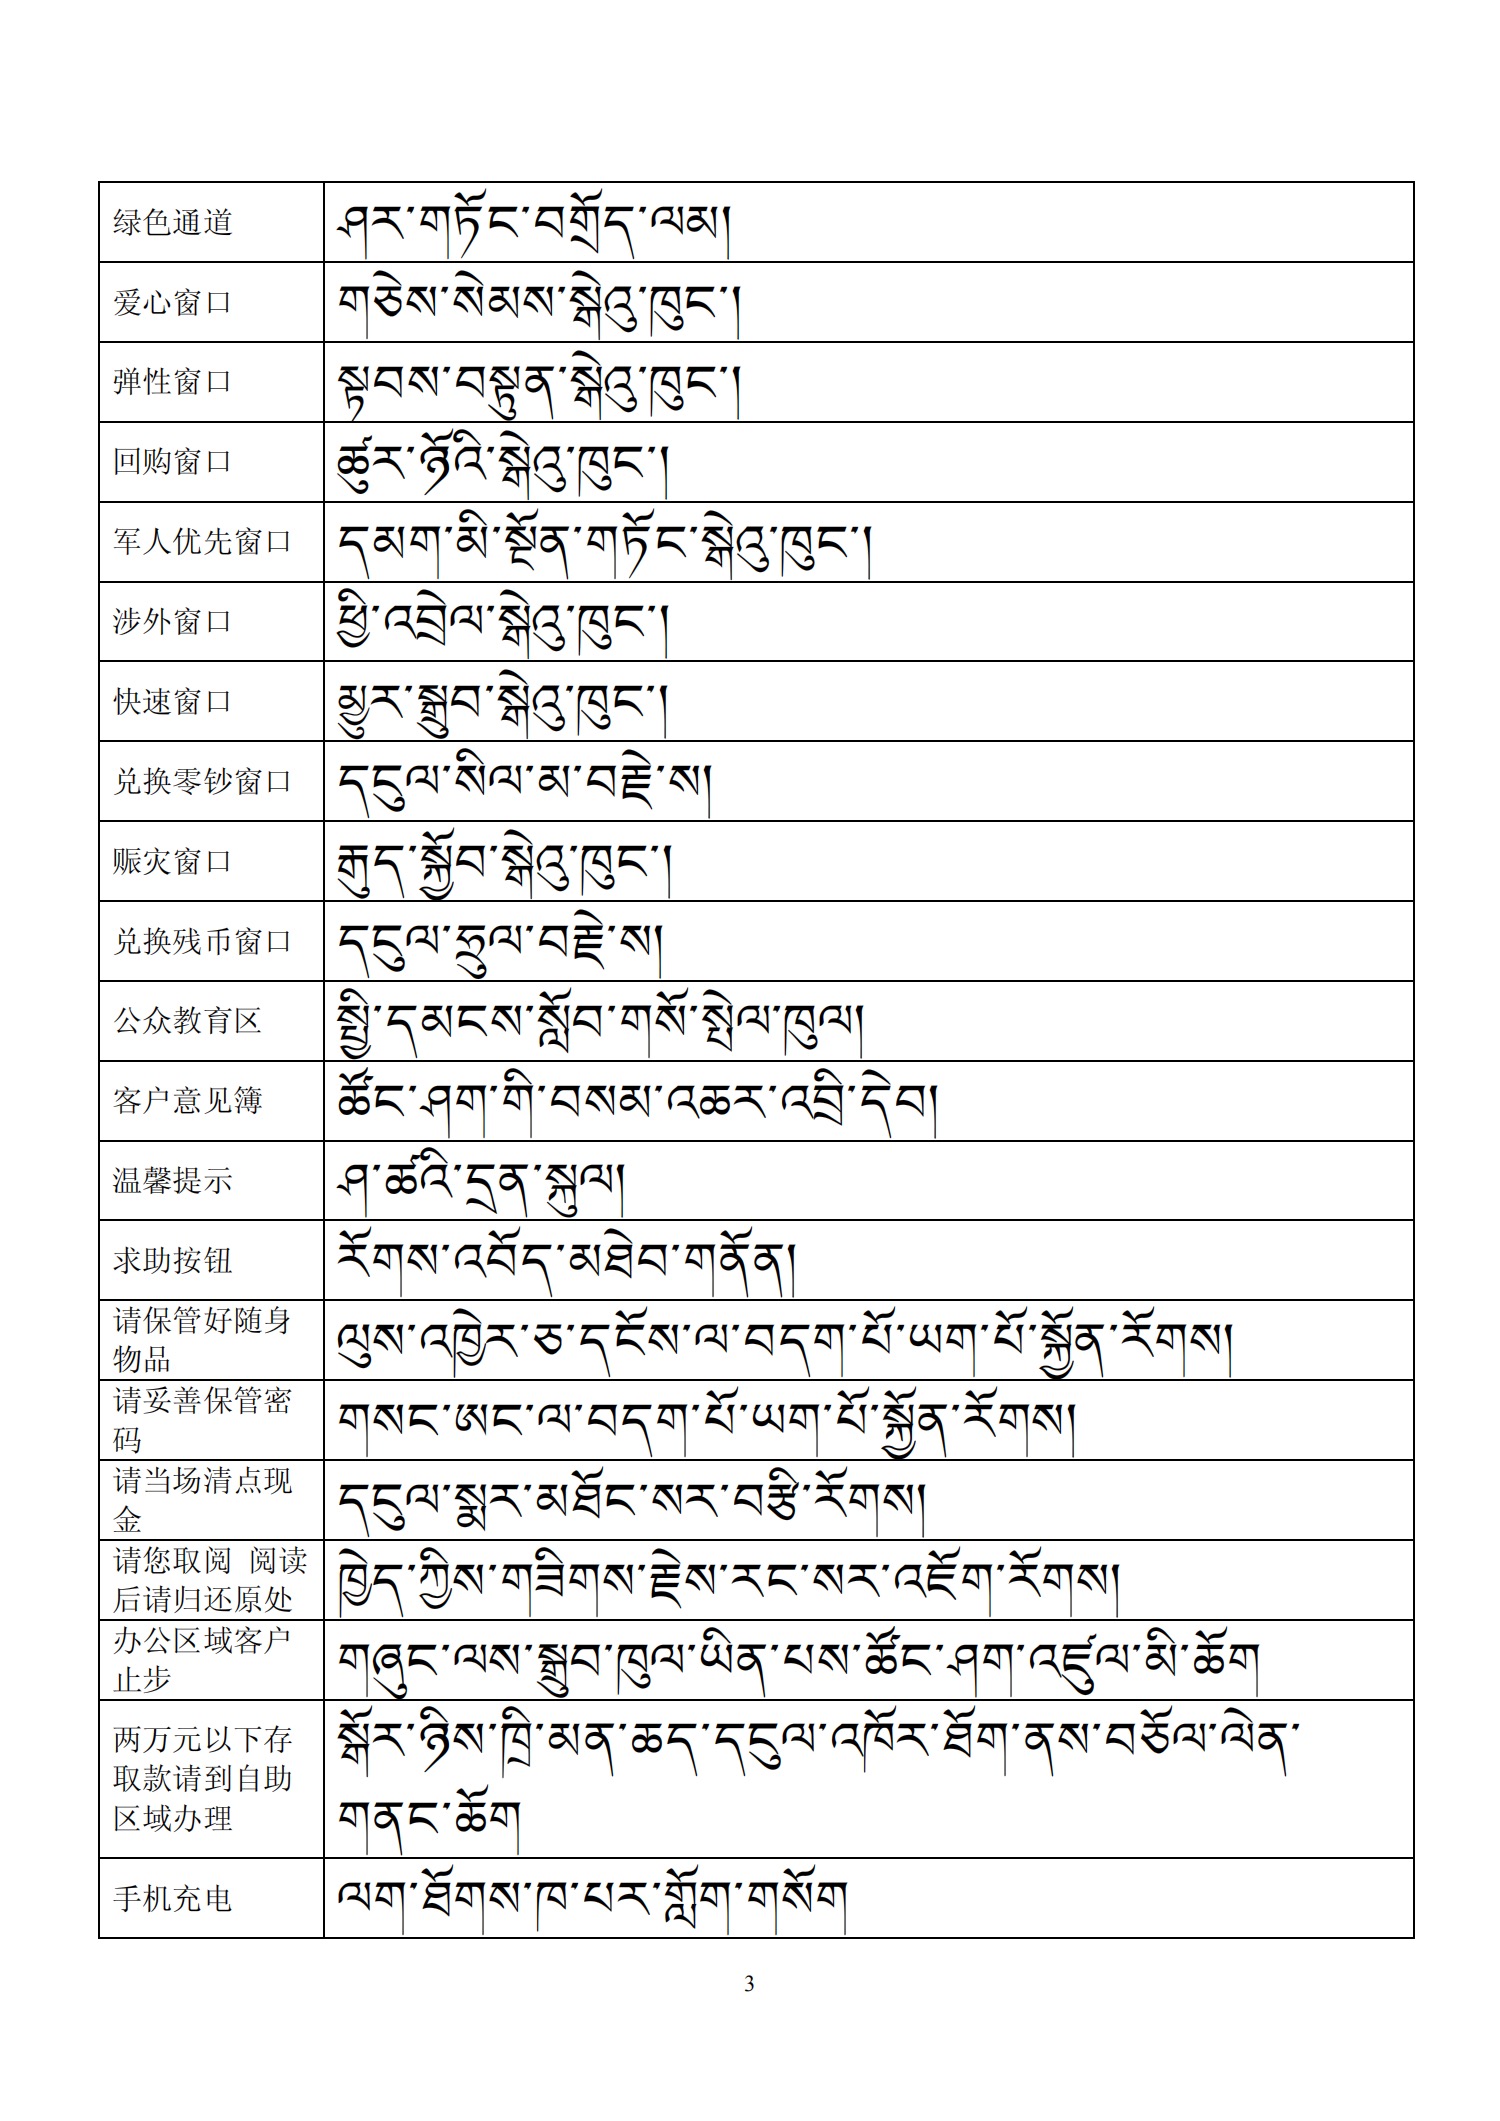 绿色通道 ཤར་གཏོང་བགྲོད་ལམ།
爱心窗口 གཅེས་སེམས་སྒེའུ་ཁུང་།
弹性窗口 སྟབས་བསྟུན་སྒེའུ་ཁུང་།
回购窗口 ཚུར་ཉོའི་སྒེའུ་ཁུང་།
军人优先窗口 དམག་མི་སྔོན་གཏོང་སྒེའུ་ཁུང་།
涉外窗口 ཕྱི་འབྲེལ་སྒེའུ་ཁུང་།
快速窗口 མྱུར་སྒྲུབ་སྒེའུ་ཁུང་།
兑换零钞窗口 དངུལ་སིལ་མ་བརྗེ་ས།
赈灾窗口 རྒུད་སྐྱོབ་སྒེའུ་ཁུང་།
兑换残币窗口 དངུལ་ཧྲུལ་བརྗེ་ས།
公众教育区 སྤྱི་དམངས་སློབ་གསོ་སྤེལ་ཁུལ།
客户意见簿 ཚོང་ཤག་གི་བསམ་འཆར་འབྲི་དེབ།
温馨提示 ཤ་ཚའི་དྲན་སྐུལ།
求助按钮 རོགས་འབོད་མཐེབ་གནོན།
请保管好随身
物品
ལུས་འཁྱེར་ཅ་དངོས་ལ་བདག་པོ་ཡག་པོ་སྐྱོན་རོགས།
请妥善保管密
码
གསང་ཨང་ལ་བདག་པོ་ཡག་པོ་སྐྱོན་རོགས།
请当场清点现
金
དངུལ་སྨར་མཐོང་སར་བརྩི་རོགས།
请您取阅 阅读
后请归还原处
ཁྱེད་ཀྱིས་གཟིགས་རྗེས་རང་སར་འཇོག་རོགས།
办公区域客户
止步
གཞུང་ལས་སྒྲུབ་ཁུལ་ཡིན་པས་ཚོང་ཤག་འཛུལ་མི་ཆོག
两万元以下存
取款请到自助
区域办理
སྒོར་ཉིས་ཁྲི་མན་ཆད་དངུལ་འཁོར་ཐོག་ནས་བཅོལ་ལེན་
གནང་ཆོག
手机充电 ལག་ཐོགས་ཁ་པར་གློག་གསོག
3